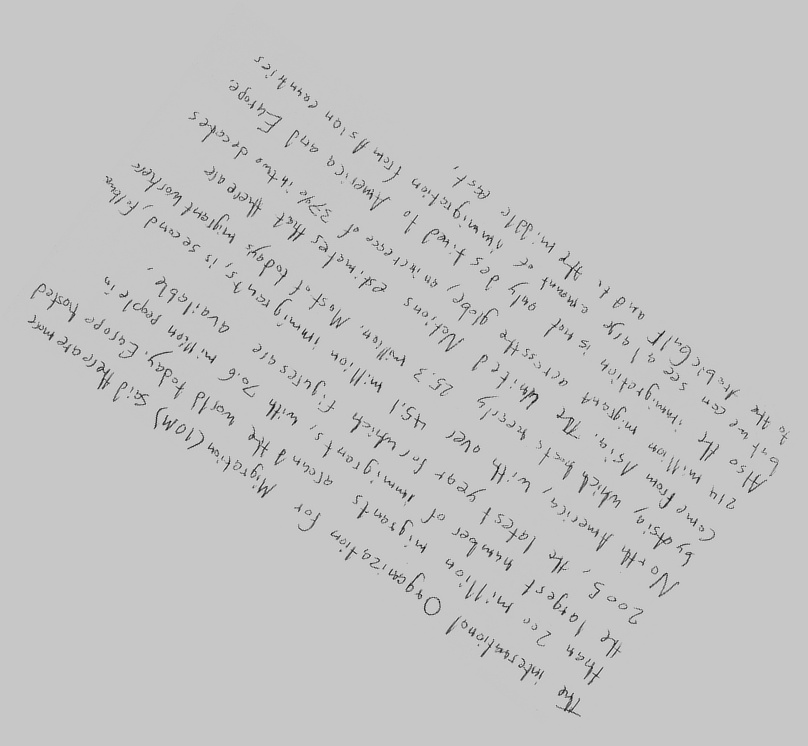 The international Organization for Migration (IOM) said there are more
than 200 million migrants around the world today. Europe hosted
the largest number of immigrants, with 70.6 million people in
2005, the latest year for which figures are available,
North America, with over 45.1 million immigrants, is second,
by Asia, which hosts nearly 25.3 million. Most of todays migrant workers
Come from Asia. The United Nations estimates that there are
214 million migrant across the globe, an increase of 37% in two decades
Also the immigration is not only destined to America and Europe.
but we can see a large amount of immigration from Asian countries
to the Arabic Gulf and to the middle east,